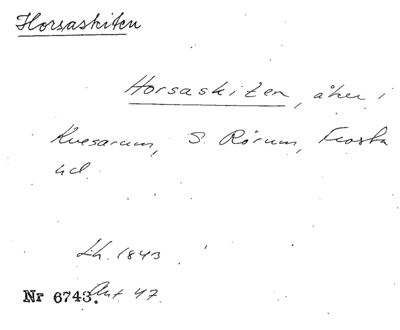 Horsaskiten
Horsaskiten, åker i
Kvesarum, S. Rörum, Frosta
hd.
Lh. 1843
Nr 6743. Akt 47.